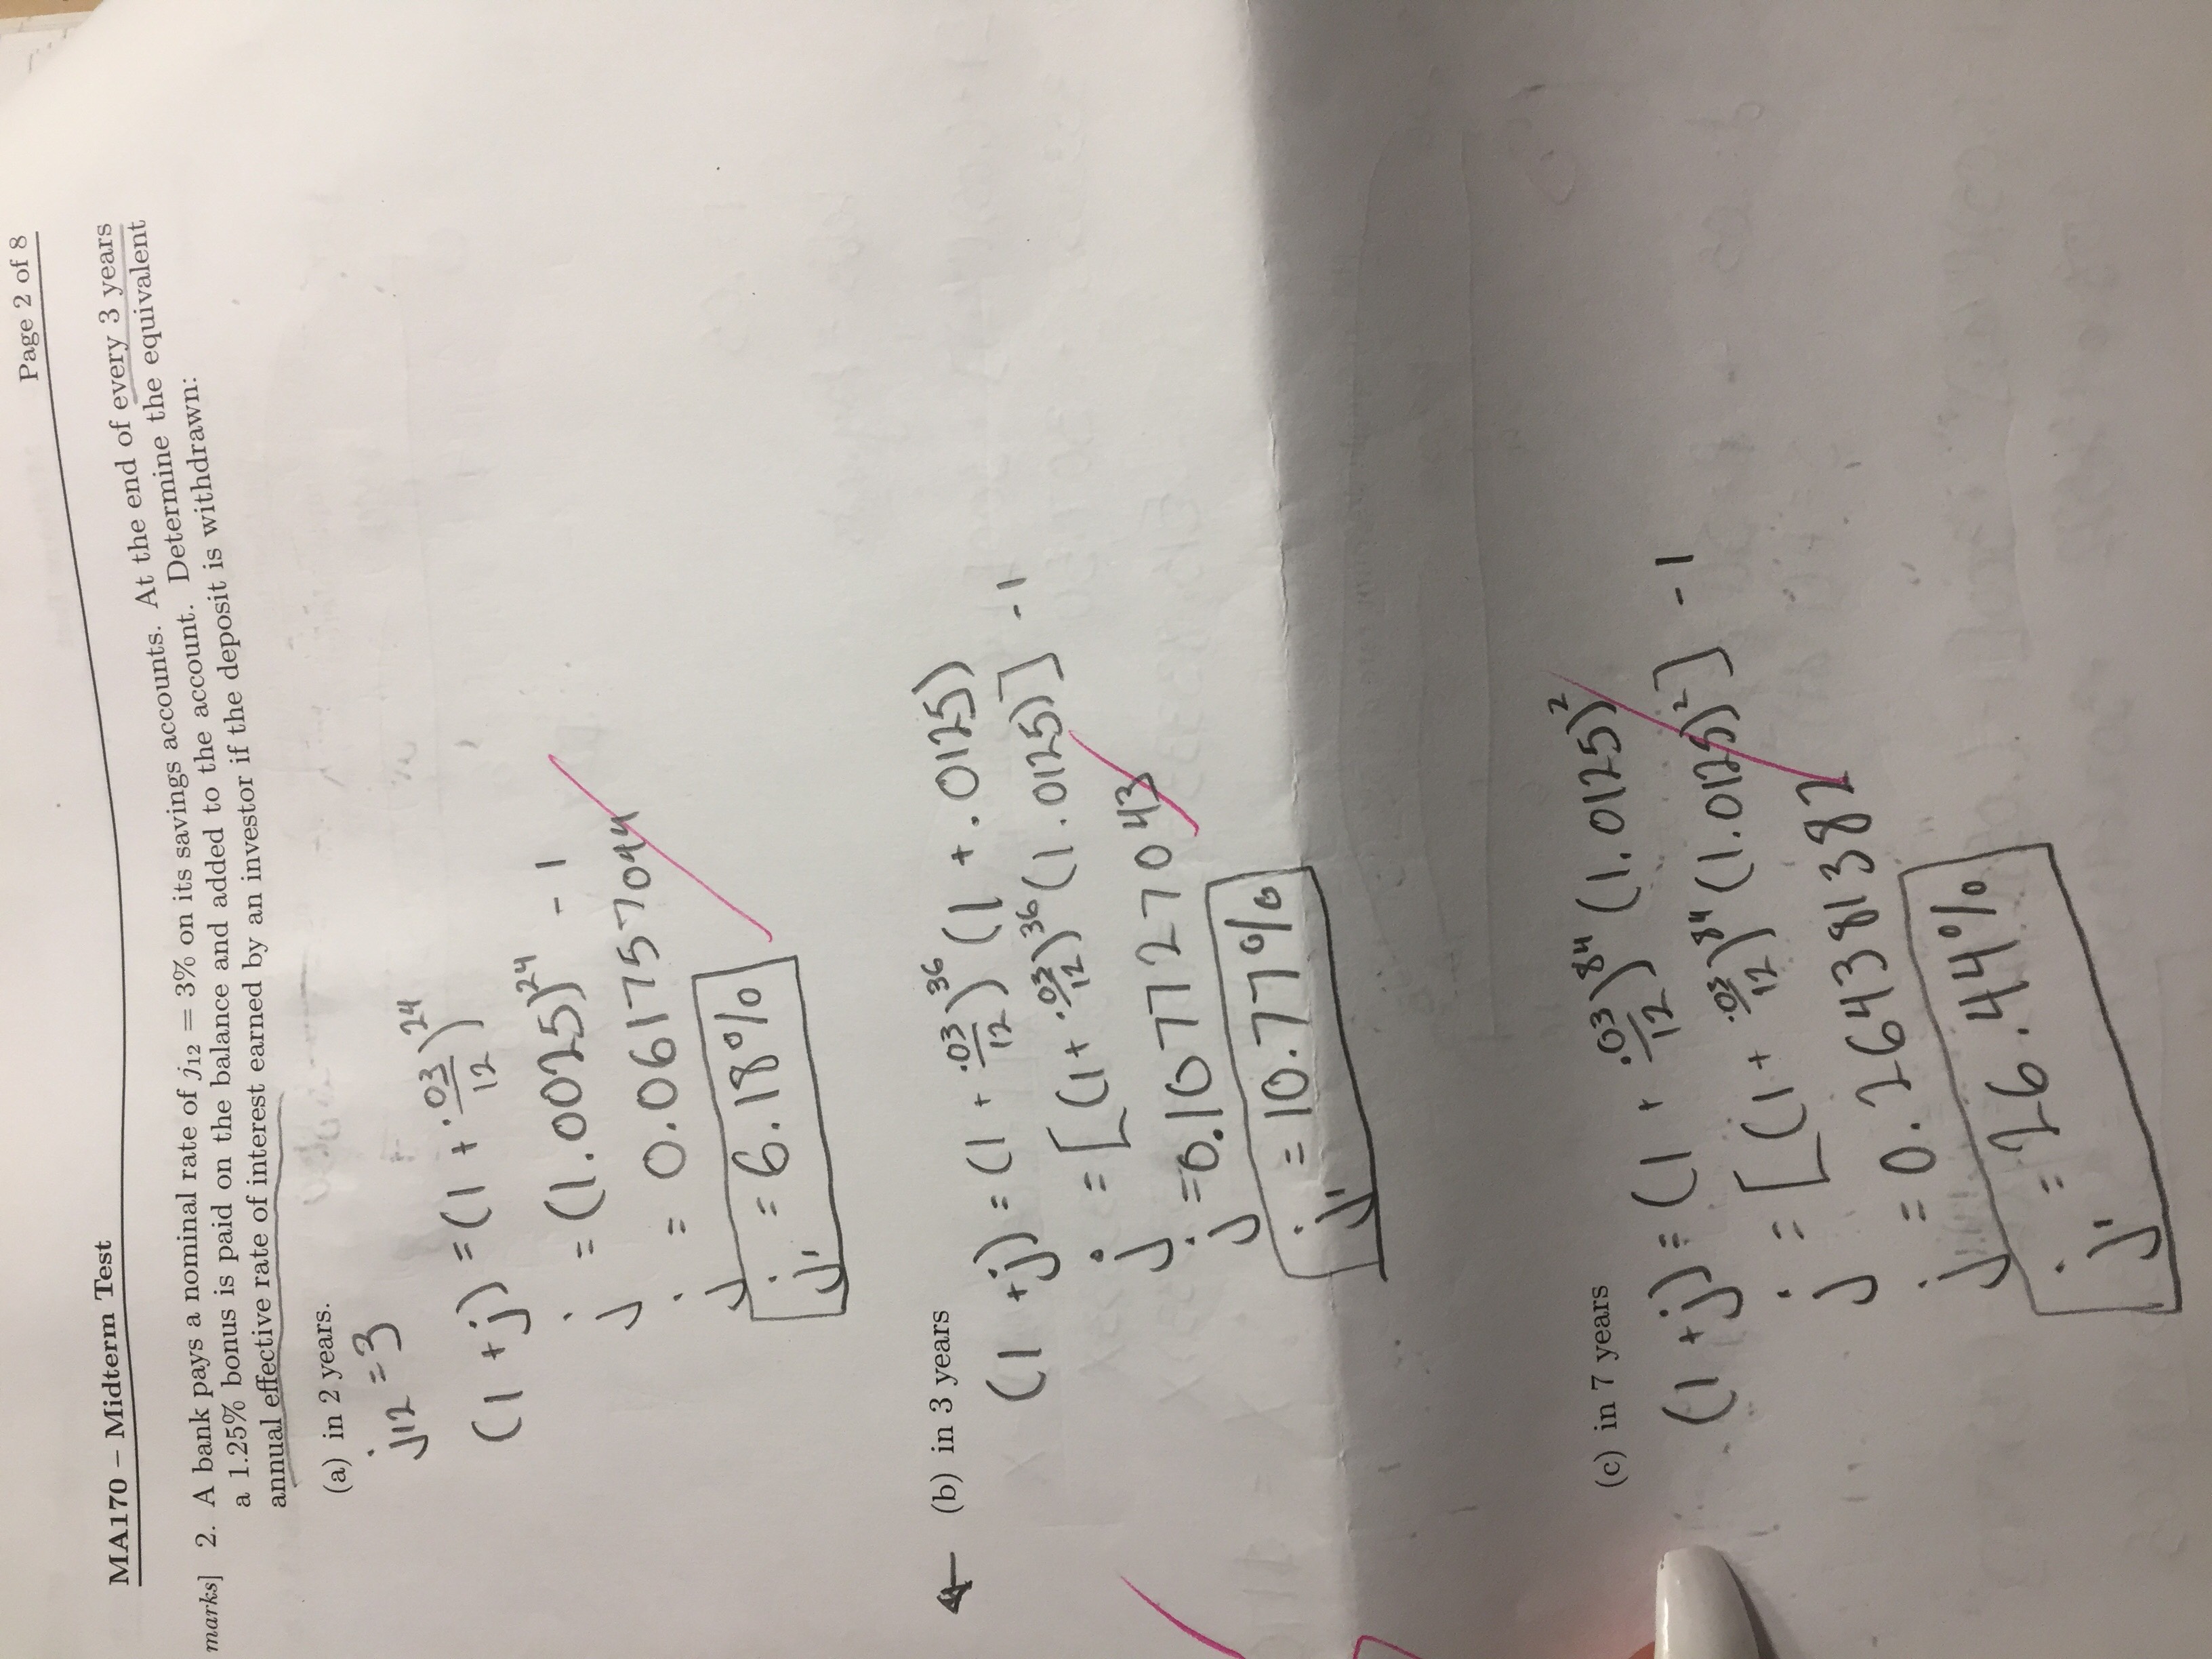 Page 2 of 8
MA170 – Midterm Test
marks] 2. A bank pays a nominal rate of j12 = 3% on its savings accounts. At the end of every 3 years
a 1.25% bonus is paid on the balance and added to the account. Determine the equivalent
annual effective rate of interest earned by an investor if the deposit is withdrawn:
(a) in 2 years.
j12 = 3
(1 + j) = (1 + .03/12)^24
j = (1.0025)^24 - 1
j = 0.061757044
j1 = 6.18%
(b) in 3 years
(1 + j) = (1 + .03/12)^36 (1 + .0125)
j = [(1 + .03/12)^36 (1.0125)] - 1
j = 0.107727043
j1 = 10.77%
(c) in 7 years
(1 + j) = (1 + .03/12)^84 (1.0125)^2
j = [(1 + .03/12)^84 (1.0125)^2] - 1
j = 0.264381382
j1 = 26.44%